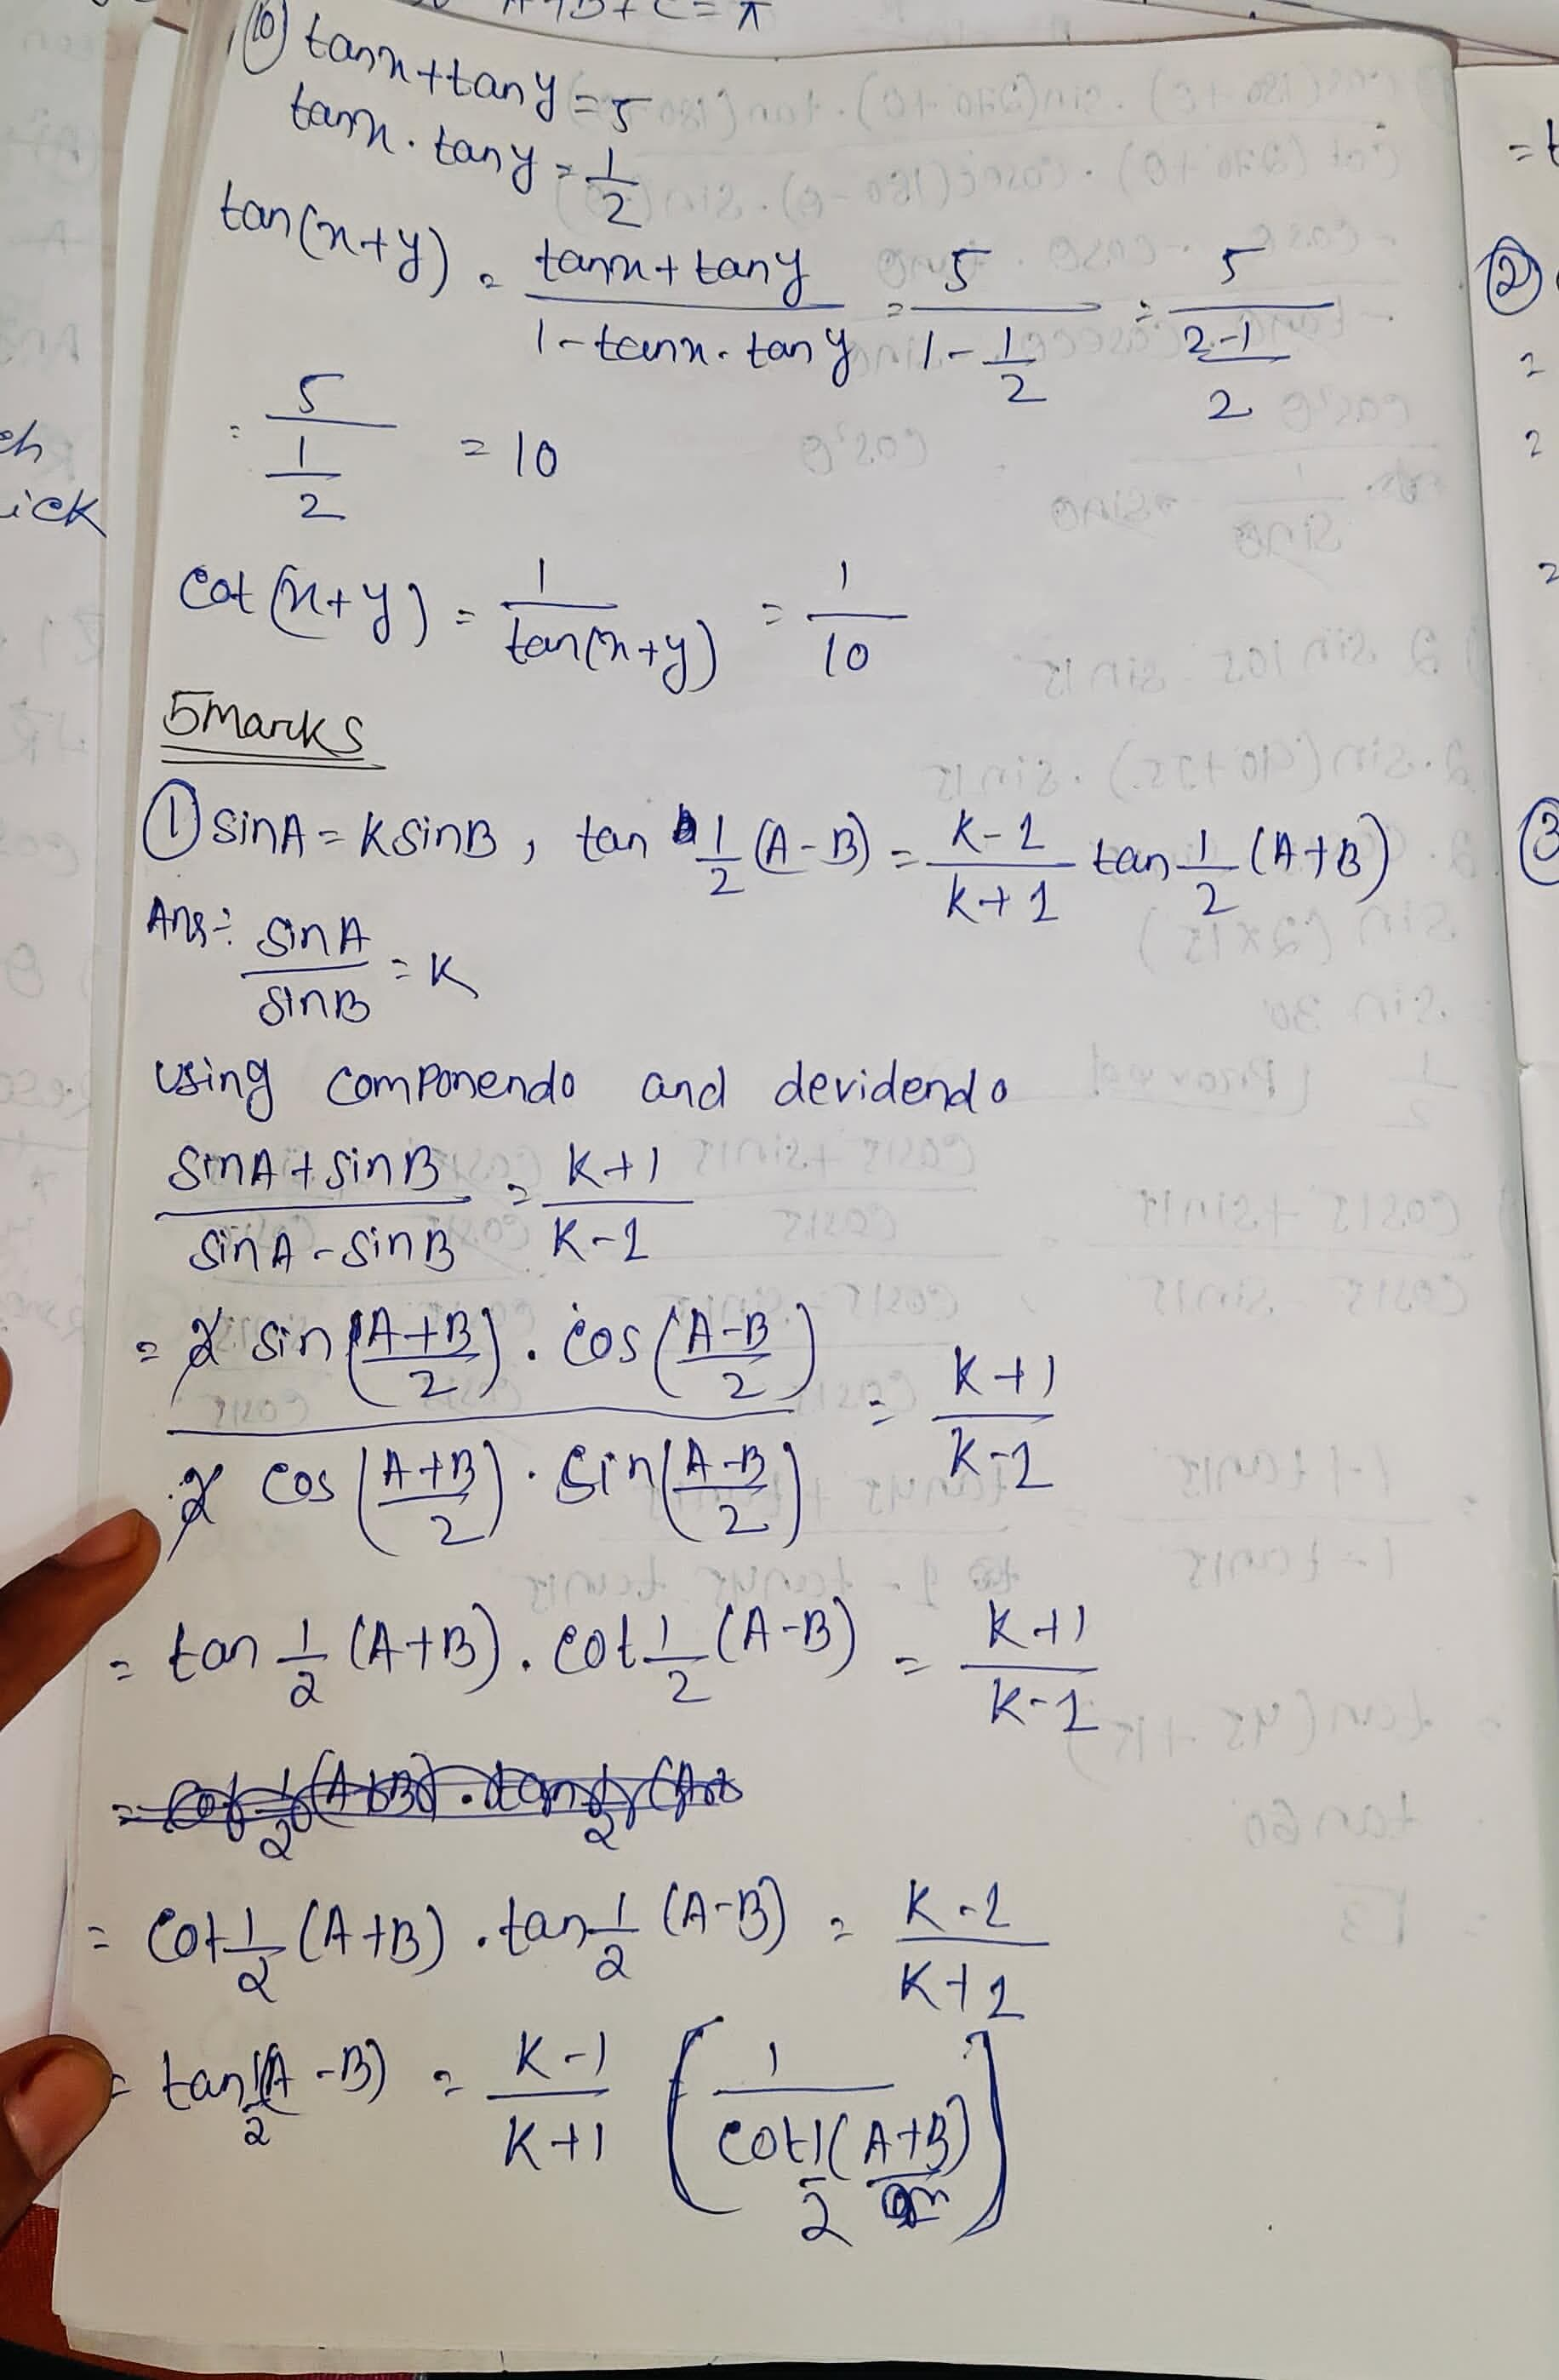 A+B+C=π
⑩ tanx+tany=5
tanx.tany=1/2
tan(x+y) = (tanx+tany)/(1-tanx.tany) = 5/(1-1/2) = 5/((2-1)/2)
= 5/(1/2) = 10
cot(x+y) = 1/tan(x+y) = 1/10
5marks
① sinA=KsinB, tan 1/2 (A-B) = (K-1)/(K+1) tan 1/2 (A+B)
Ans:- sinA/sinB = K
using componendo and devidendo
(sinA+sinB)/(sinA-sinB) = (K+1)/(K-1)
= 2 sin((A+B)/2).cos((A-B)/2) / 2 cos((A+B)/2).sin((A-B)/2) = (K+1)/(K-1)
= tan 1/2 (A+B).cot 1/2 (A-B) = (K+1)/(K-1)
= cot 1/2 (A+B).tan 1/2 (A-B) = (K-1)/(K+1)
= tan 1/2 (A-B) = (K-1)/(K+1) (1/(cot 1/2 (A+B)))
eh
ick
②
③